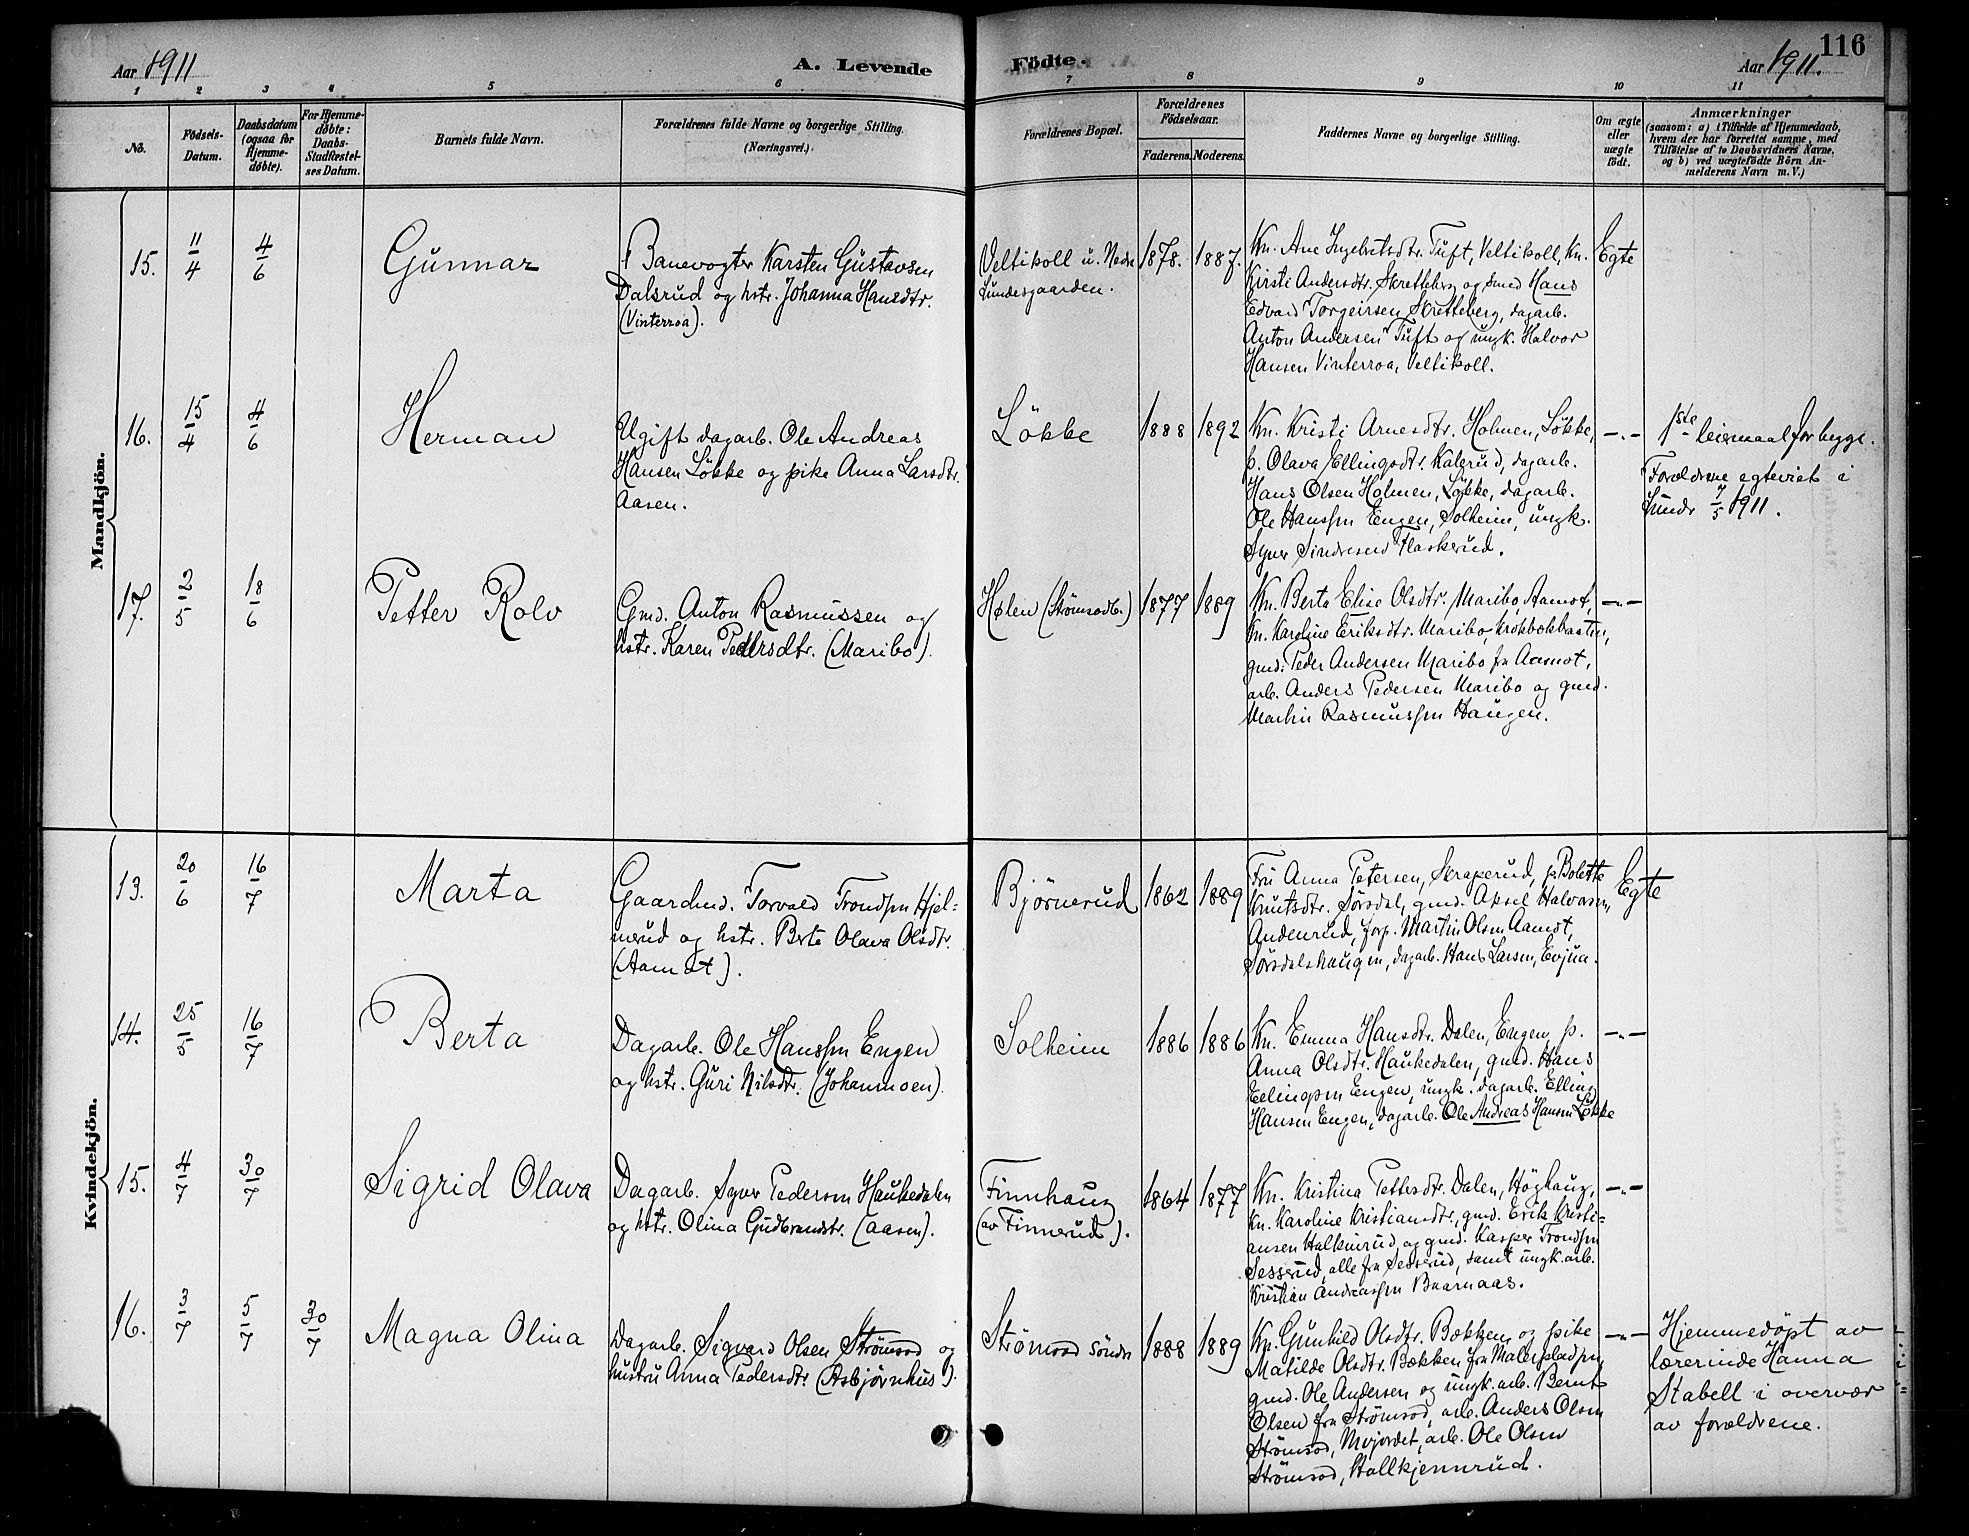 Aar 1911
A. Levende
Födte.
Aar 1911.
116
1 2 3 4 5 6 7 8 9 10 11
No.
Födsels-
Datum.
Daabsdatum
(ogsaa for
Hjemme-
døbte).
For Hjemme-
døbte:
Daabs-
Stadfæstel-
ses Datum.
Barnets fulde Navn.
Forældrenes fulde Navne og borgerlige Stilling.
(Næringsvei.)
Forældrenes Bopæl.
Forældrenes
Födselsaar.
Faderens. Moderens.
Faddernes Navne og borgerlige Stilling.
Om ægte
eller
uægte
født.
Anmærkninger
(saasom: a) i Tilfælde af Hjemmedaab,
hvem der har forrettet samme, med
Tilføielse af to Daabsvidners Navne,
og b) ved uægtefödte Börn An-
melderens Navn m. V.)
Mandkjön.
15.
11/4
4/6
Gunnar
Banevogter Karsten Gustavsen
Dalsrud og hstr. Johanna Hansdtr.
(Vinterroa).
Veltikoll u. Nedre
Lundesgaarden.
1878. 1887.
Kn. Ane Ingebretsdtr. Tuft, Veltikoll, Kn.
Kirsti Andersdtr. Skretteberg og smed Hans
Edvard Torgeirsen Skretteberg, dagarb.
Anton Andersen Tuft og ungk. Halvor
Hansen Vinterroa, Veltikoll.
Egte
16.
15/4
4/6
Herman
Ugift dagarb. Ole Andreas
Hansen Løkke og pike Anna Larsdtr.
Aasen.
Løkke
1888 1892
Kn. Kristi Arnesdtr. Holmen, Løkke,
p. Olava Ellingsdtr. Kalerud, dagarb.
Hans Olsen Holmen, Løkke, dagarb.
Ole Hanssen Engen, Solheim, ungk.
Syver Sindresen Flaskerud.
—„—
1ste leiermaal for begge.
Forældrene egteviet i
Lunder 7/5 1911.
17.
2/5
18/6
Petter Rolv
Gmd. Anton Rasmussen og
hstr. Karen Pedersdtr. (Maribo).
Hølen (Strømsodb.)
1877 1889
Kn. Berta Elise Olsdtr. Maribo, Aamot,
Kn. Karoline Eriksdtr. Maribo, Krokbokbraaten,
gmd. Peder Andersen Maribo fra Aamot,
arb. Anders Pedersen Maribo og gmd.
Martin Rasmussen Haugen.
—„—
Kvindekjön.
13.
20/6
16/7
Marta
Gaardmd. Torvald Trondsen Hjel-
merud og hstr. Berte Olava Olsdtr.
(Aamot).
Bjørnerud
1862 1889
Fru Anna Petersen, Skraperud, p. Bolette
Knutsdtr. Sørsdal, gmd. Aksel Halvorsen,
Andenrud, forp. Martin Olsen Aamot,
Sørsdalshaugen, dagarb. Hans Larsen, Evjua.
Egte
14.
25/5
16/7
Berta
Dagarb. Ole Hanssen Engen
og hstr. Guri Nilsdtr. (Johanmoen).
Solheim
1886 1886
Kn. Emma Hansdtr. Dalen, Engen, p.
Anna Olsdtr. Haukedalen, gmd. Hans
Ellingsen Engen, ungk. dagarb. Elling
Hansen Engen, dagarb. Ole Andreas Hansen Løkke
—„—
15.
4/7
30/7
Sigrid Olava
Dagarb. Syver Pedersen Haukedalen
og hstr. Olina Gudbrandsdtr. (Aasen).
Finnhaug
(av Finnerud).
1864 1877
Kn. Kristina Pettersdtr. Dalen, Høghaug,
Kn. Karoline Kristiansdtr., gmd. Erik Kristi-
ansen Halkinrud og gmd. Kasper Trondsen
Sesserud, alle fra Sesserud, samt ungk. arb.
Kristian Andreassen Buarnaas.
—„—
16.
3/7
5/7
30/7
Magna Olina
Dagarb. Sigvard Olsen Strømsod og
hustru Anna Pedersdtr. (Asbjørnhus).
Strømsod søndre
1888 1889
Kn. Gunhild Olsdtr. Bækken og pike
Matilde Olsdtr. Bækken fra Malerpladsen,
gmd. Ole Andersen og ungk. arb. Bernt
Olsen fra Strømsod, arb. Anders Olsen
Strømsod, Myjordet, arb. Ole Olsen
Strømsod, Hallkjennrud.
—„—
Hjemmedøpt av
lærerinde Hanna
Stabell i overvær
av forældrene.